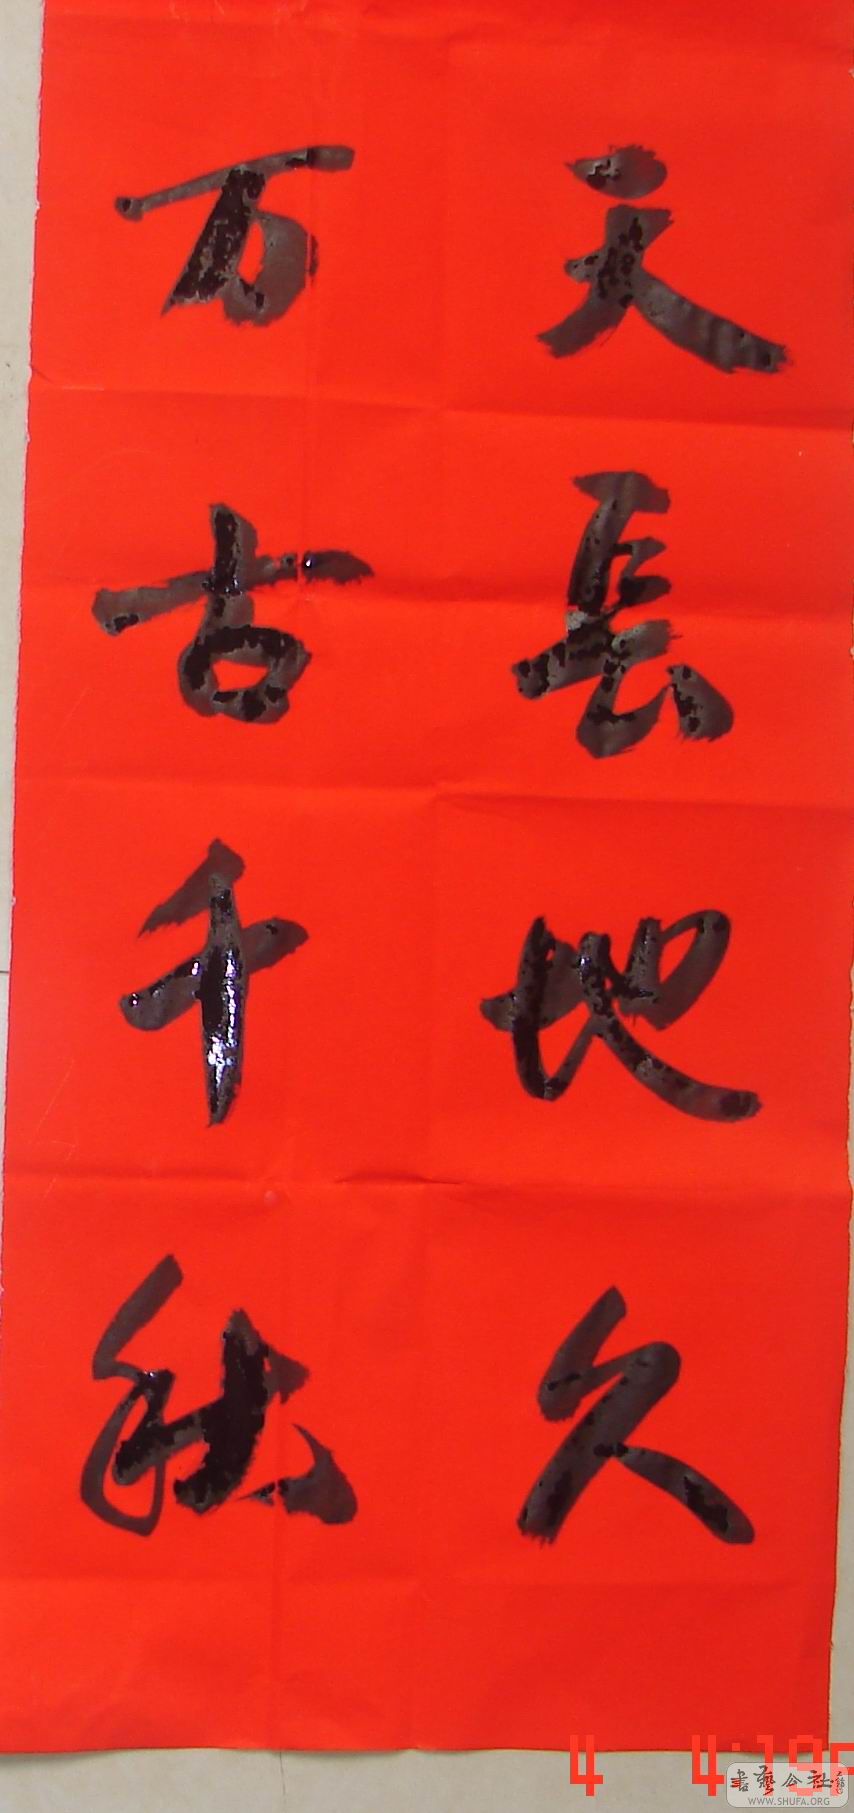 天長地久
万古千秋
4 4:19
書藝公社
WWW.SHUFA.ORG